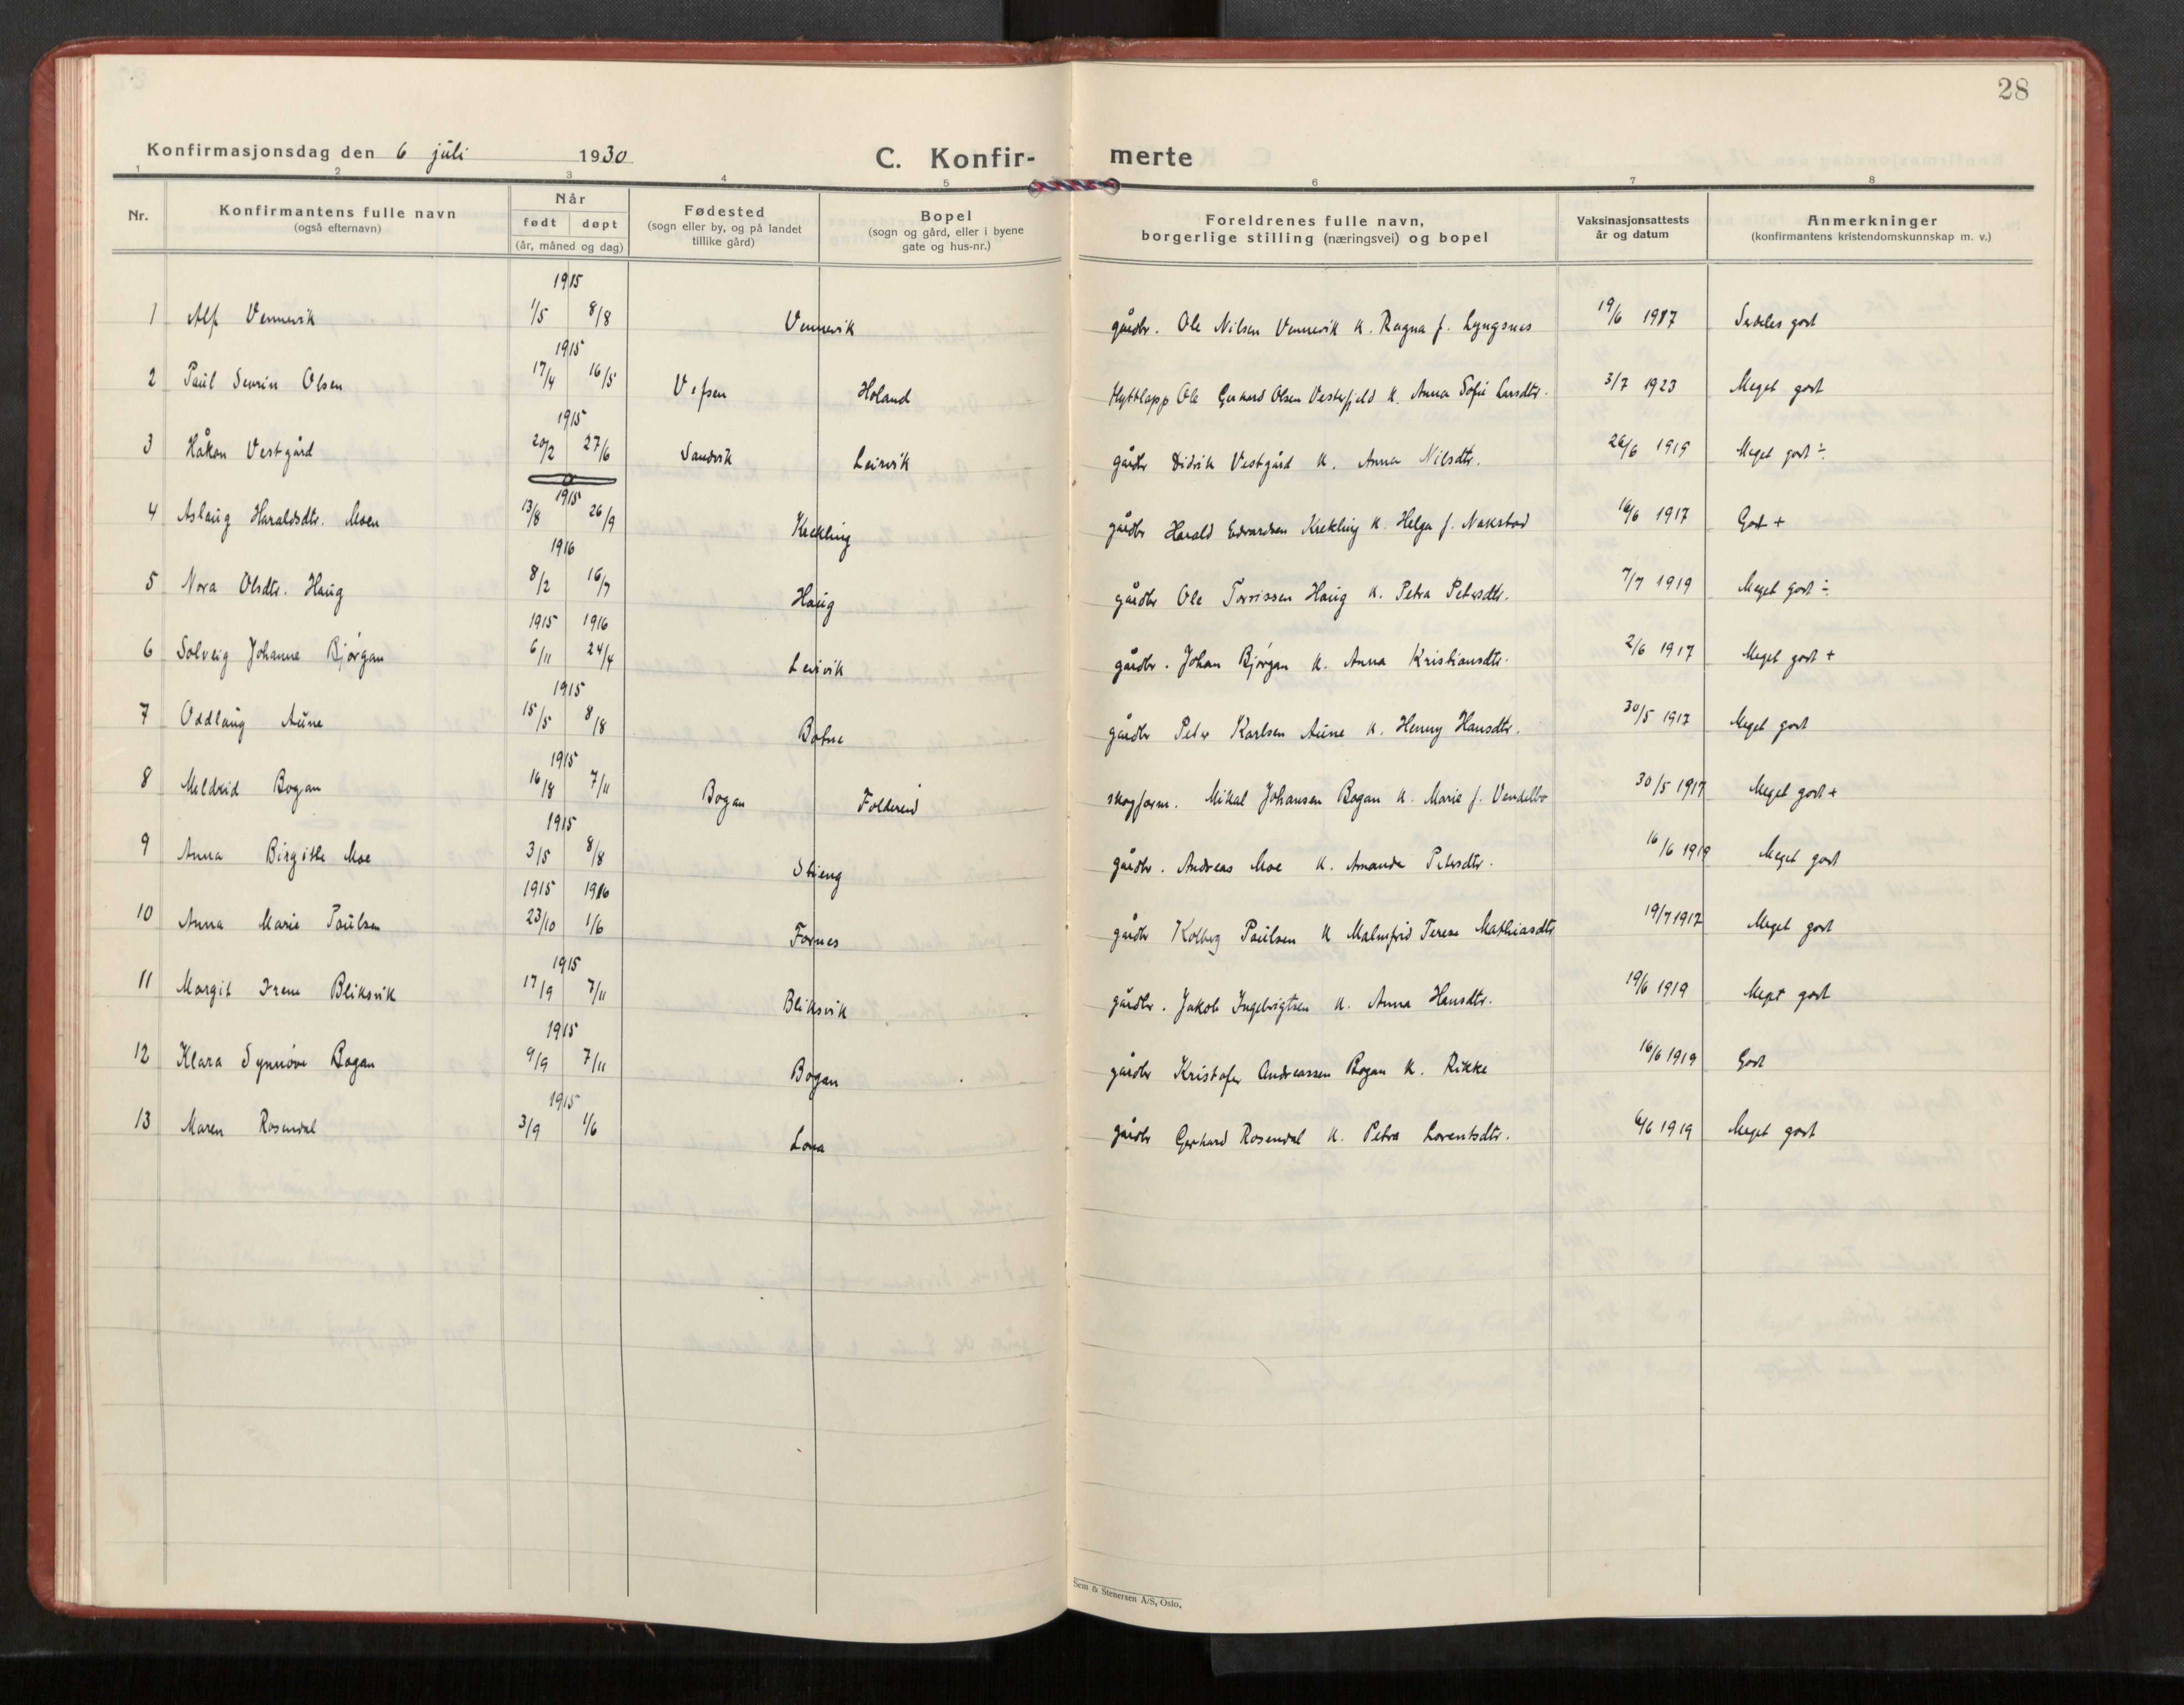 28
Konfirmasjonsdag den 6 juli 1930
C. Konfir- merte
1 2 3 4 5 6 7 8
Nr. Konfirmantens fulle navn (også efternavn) Når født døpt (år, måned og dag) Fødested (sogn eller by, og på landet tillike gård) Bopel (sogn og gård, eller i byene gate og hus-nr.) Foreldrenes fulle navn, borgerlige stilling (næringsvei) og bopel Vaksinasjonsattests år og datum Anmerkninger (konfirmantens kristendomskunnskap m. v.)
1915
1 Alf Vennevik 1/5 8/8 Vennevik gårdbr. Ole Nilsen Vennevik k. Ragna f. Lyngsnes 19/6 1917 Særdeles godt
1915
2 Paul Sevrin Olsen 17/4 16/5 Vefsen Holand Flyttlapp Ole Gerhard Olsen Vestefjeld k. Anna Sofie Larsdtr. 3/7 1923 Meget godt
1915
3 Håkon Vestgård 20/2 27/6 Sandvik Leirvik gårdbr Didrik Vestgård k. Anna Nilsdtr. 26/6 1919 Meget godt ÷
1915
4 Aslaug Haraldsdtr. Moen 13/8 26/9 Krekling gårdbr Harald Edvardsen Krekling k. Helga f. Nakstad 16/6 1917 Godt +
1916
5 Nora Olsdtr. Haug 8/2 16/7 Haug gårdbr Ole Torrissen Haug k. Petra Petersdtr. 7/7 1919 Meget godt ÷
1915 1916
6 Solveig Johanne Bjørgan 6/11 24/4 Leirvik gårdbr. Johan Bjørgan k. Anna Kristiansdtr. 2/6 1917 Meget godt +
1915
7 Oddlaug Aune 15/5 8/8 Botne gårdbr Peter Karlsen Aune k. Henny Hansdtr. 30/5 1917 Meget godt
1915
8 Meldrid Bogan 16/8 7/11 Bogan Foldereid skogform. Mikal Johansen Bogan k. Marie f. Vendelbo 30/5 1917 Meget godt +
1915
9 Anna Birgitte Moe 3/5 8/8 gårdbr. Andreas Moe k. Amanda Petersdtr. 16/6 1919 Meget godt
1915 1916
10 Anna Marie Paulsen 23/10 1/6 Fornes gårdbr Kolberg Paulsen k Malmfrid Terese Mathiasdtr 19/7 1917 Meget godt
1915
11 Margit Irene Bliksvik 17/9 7/11 Bliksvik gårdbr. Jakob Ingebrigtsen k. Anna Hansdtr. 19/6 1919 Meget godt
1915
12 Klara Synnøve Bogan 9/9 7/11 Bogan gårdbr Kristofer Andreassen Bogan k. Rikke 16/6 1919 Godt
1915
13 Maren Rosendal 3/9 1/6 Lona gårdbr Gerhard Rosendal k. Petra Lorentsdtr. 6/6 1919 Meget godt
Sem & Stenersen A/S, Oslo.